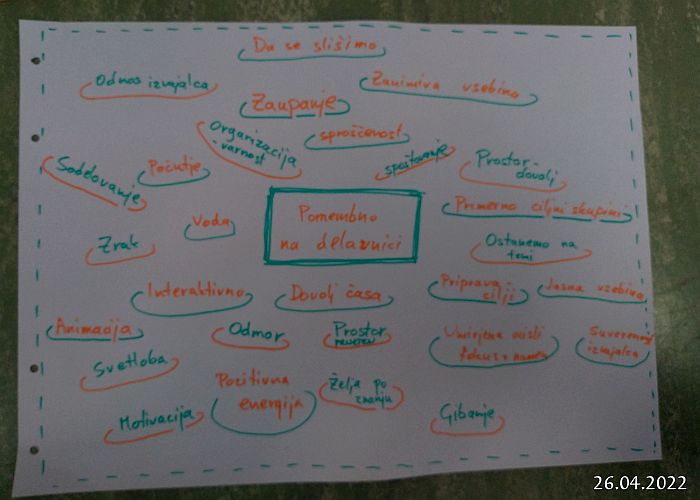 Da se slišimo
Odnos izvajalca
Zanimiva vsebina
Zaupanje
Organizacija
- varnost
sproščenost
spoštovanje
Prostor -
dovolj
Sodelovanje
Počutje
Primerno ciljni skupini
Voda
Pomembno
na delavnici
Zrak
Ostanemo na
temi
Interaktivno
Dovolj časa
Priprava -
cilji
Jasna vsebina
Animacija
Odmor
Prostor
Umirjena misli
fokus +
Suverenost
izvajalca
Svetloba
Pozitivna
energija
Želja po
znanju
Motivacija
Gibanje
26.04.2022